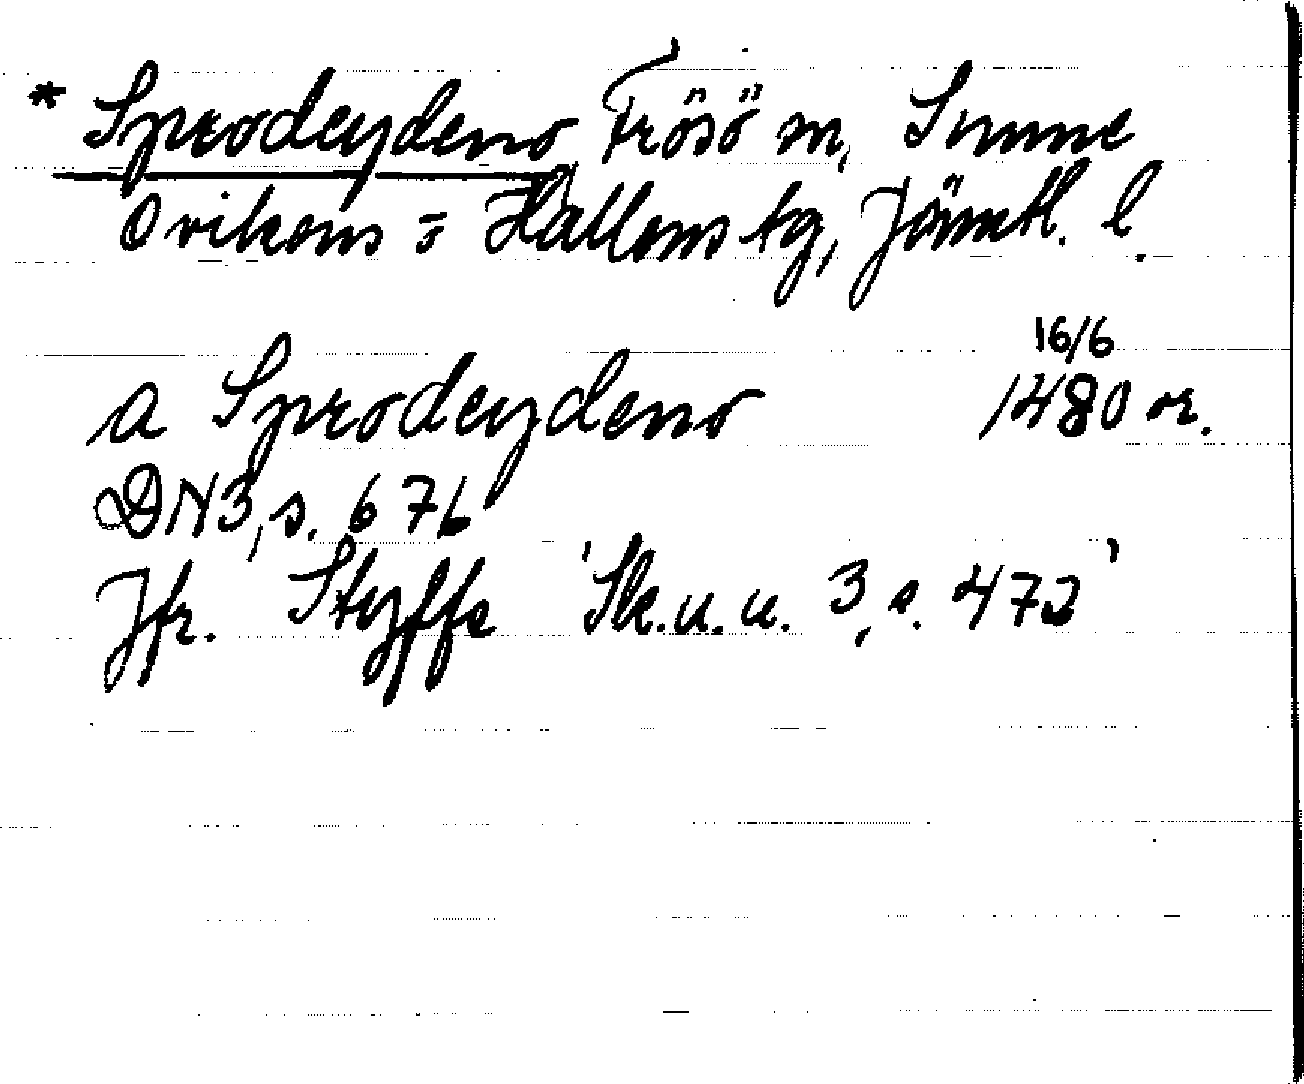 * Sprodeydeno, Frösö sn, Sunne
Ovikens o Hallens tg, Jämtl. l.
16/6
a Sprodeydeno 1480 or.
DN3, s. 676
Jfr. Styffe 'Sk.u.u. 3, s. 472'